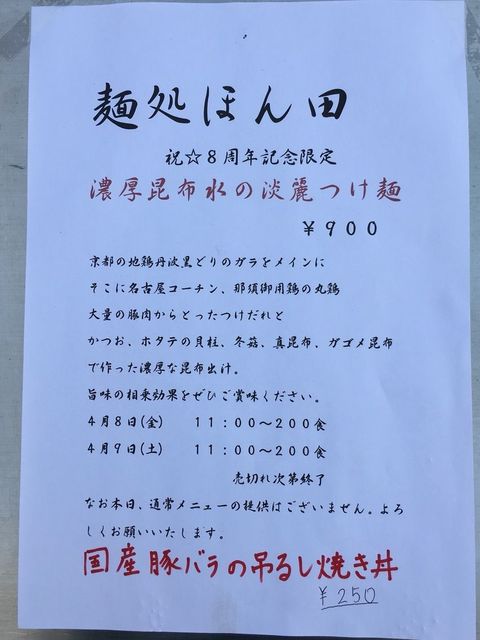 麺処ほん田
祝☆8周年記念限定
濃厚昆布水の淡麗つけ麺
￥９００
京都の地鶏丹波黒どりのガラをメインに
そこに名古屋コーチン、那須御用鶏の丸鶏
大量の豚肉からとったつけだれと
かつお、ホタテの貝柱、冬菇、真昆布、ガゴメ昆布
で作った濃厚な昆布出汁。
旨味の相乗効果をぜひご賞味ください。
４月８日(金)　１１：００～２００食
４月９日(土)　１１：００～２００食
売切れ次第終了
なお本日、通常メニューの提供はございません。よろ
しくお願いいたします。
国産豚バラの吊るし焼き丼
￥250